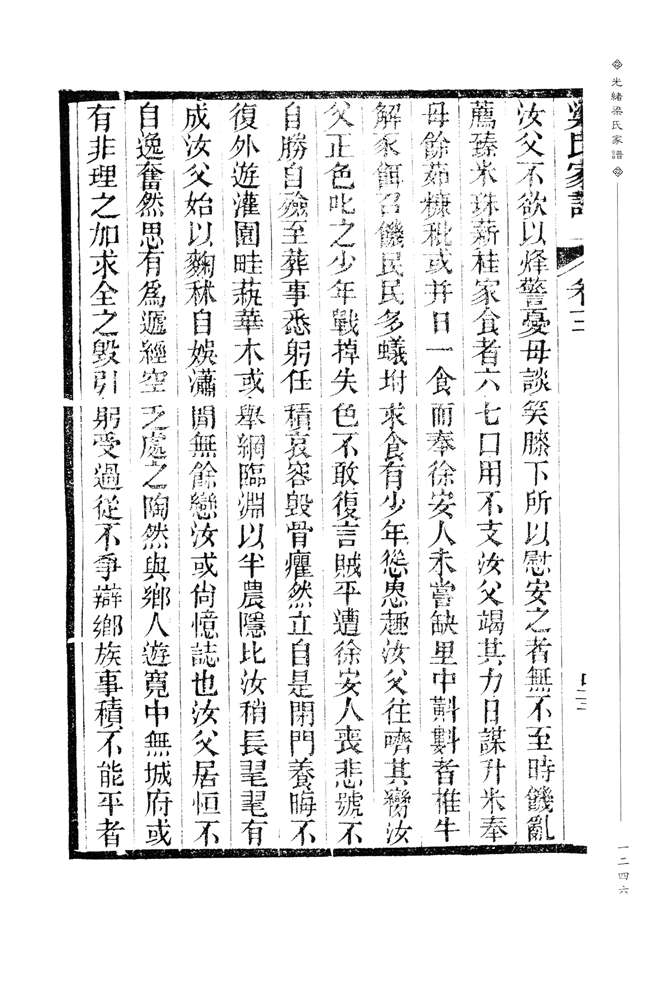 光緒梁氏家譜
一二四六
梁氏家譜 卷三 四三
汝父不欲以烽警憂母談笑膝下所以慰安之者無不至時饑亂
薦臻米珠薪桂家食者六七口用不支汝父竭其力日謀升米奉
母餘茹糠秕或并日一食而奉徐安人未嘗缺里中黠者椎牛
解豕餌召饑民民多蟻坿求食有少年慫恿趣汝父往嚌其臠汝
父正色叱之少年戰掉失色不敢復言賊平遭徐安人喪悲號不
自勝自殮至葬事悉躬任積哀容毀骨癯然立自是閉門養晦不
復外遊灌園畦蓺華木或舉網臨淵以半農隱比汝稍長毣毣有
成汝父始以麴秫自娛瀟閒無餘戀汝或尙憶誌也汝父居恒不
自逸奮然思有爲遞經空乏處之陶然與鄉人遊寬中無城府或
有非理之加求全之毀引躬受過從不爭辯鄉族事積不能平者